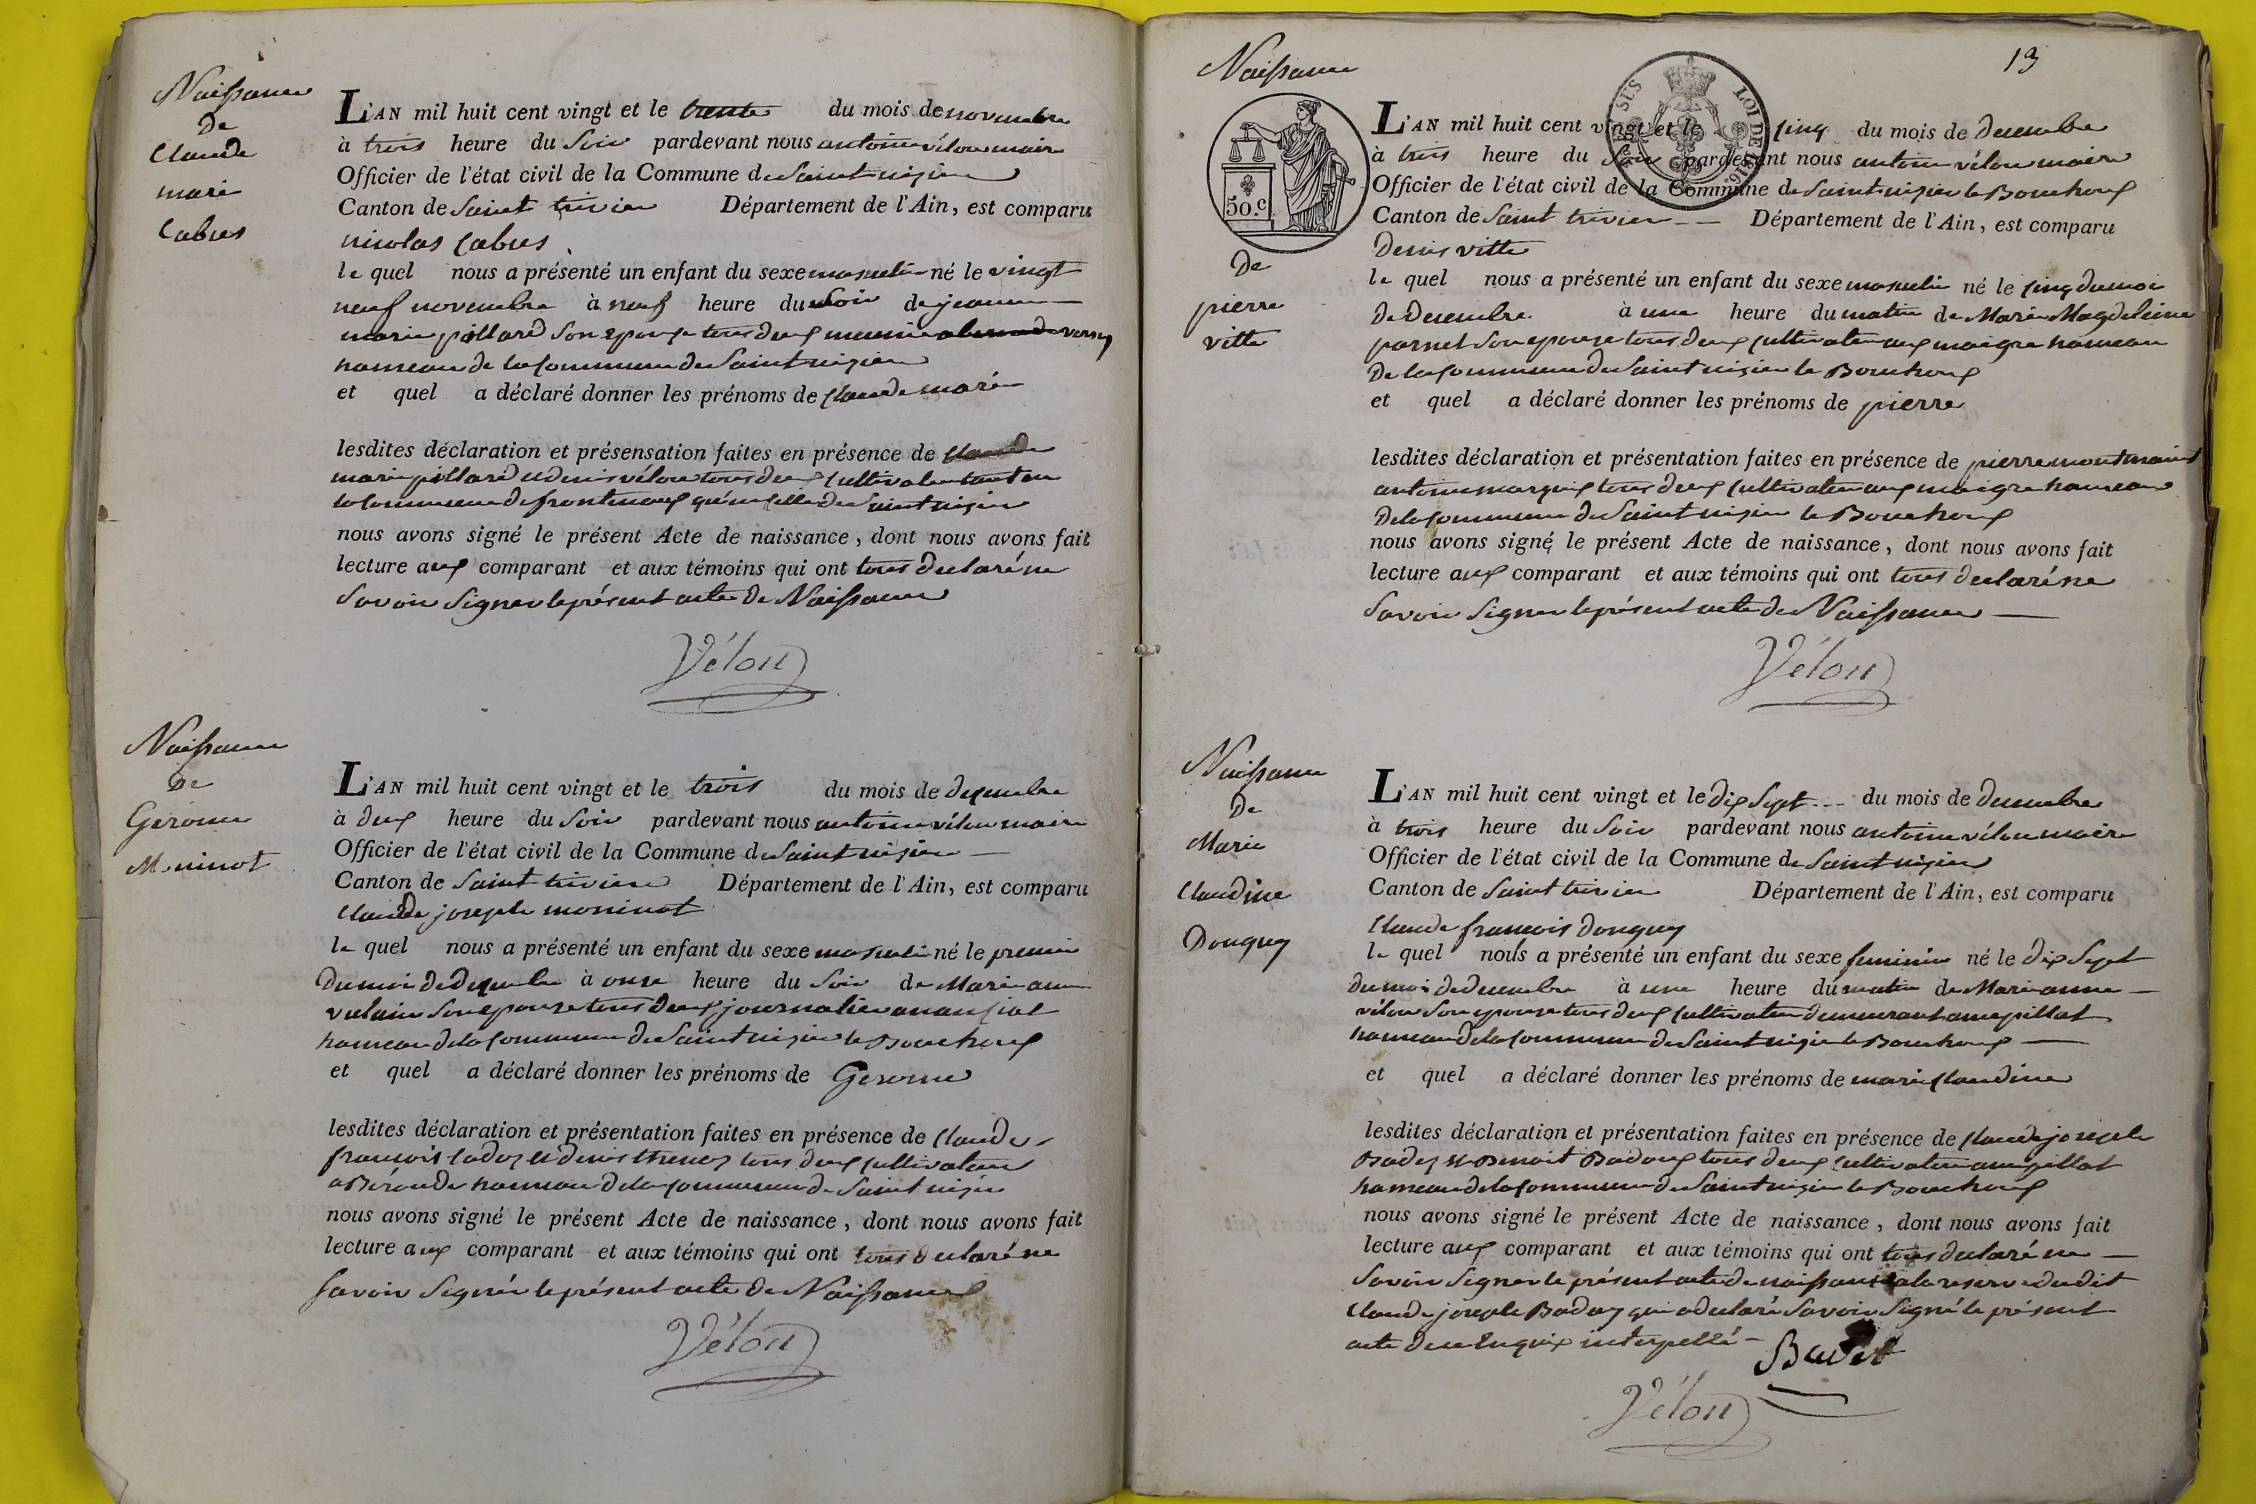 Naissance
de
Claude
marie
Cabus
L'AN mil huit cent vingt et le trente du mois de novembre
à trois heure du Soir pardevant nous antoine vélon maire
Officier de l'état civil de la Commune de Saint nizier
Canton de Saint trivier Département de l'Ain, est comparu
nicolas Cabus
le quel nous a présenté un enfant du sexe masculin né le vingt
neuf novembre à neuf heure du Soir de jeanne
marie pillard Son epouse tous deux
hameau de la Commune de Saint nizier
et quel a déclaré donner les prénoms de Claude marie
lesdites déclaration et présensation faites en présence de Claude
marie pillard et denis vélon tous deux Cultivateur tant en
la Commune de frontenaux qu'en Celle de Saint nizier
nous avons signé le présent Acte de naissance, dont nous avons fait
lecture aux comparant et aux témoins qui ont tous déclaré ne
Savoir Signer le présent acte de Naissance
Vélon
Naissance
de
Gerome
Moninot
L'AN mil huit cent vingt et le trois du mois de decembre
à deux heure du Soir pardevant nous antoine vélon maire
Officier de l'état civil de la Commune de Saint nizier
Canton de Saint trivier Département de l'Ain, est comparu
Claude joseph moninot
le quel nous a présenté un enfant du sexe masculin né le premier
du moi de decembre à onze heure du Soir de Marie anne
vulain Son epouse tous deux journalier
hameau de la Commune de Saint nizier le Bouchoux
et quel a déclaré donner les prénoms de Gerome
lesdites déclaration et présentation faites en présence de Claude
francois Cadoz et denis thevenoz tous deux Cultivateur
a Béronde hameau de la Commune de Saint nizier
nous avons signé le présent Acte de naissance, dont nous avons fait
lecture aux comparant et aux témoins qui ont tous déclaré ne
Savoir Signér le présent acte de Naissance
Vélon
13
Naissance
50.C
SUS LOI DE 1816.
de
pierre
vitte
L'AN mil huit cent vingt et le Cinq du mois de decembre
à trois heure du Soir pardevant nous antoine vélon maire
Officier de l'état civil de la Commune de Saint nizier le Bouchoux
Canton de Saint trivier Département de l'Ain, est comparu
denis vitte
le quel nous a présenté un enfant du sexe masculin né le Cinq du moi
de decembre à une heure du matin de Marie Magdeleine
pornet Son epouse tous deux Cultivateur aux maigre hameau
de la Commune de Saint nizier le Bouchoux
et quel a déclaré donner les prénoms de pierre
lesdites déclaration et présentation faites en présence de pierre
antoine marquis tous deux Cultivateur aux maigre hameau
de la Commune de Saint nizier le Bouchoux
nous avons signé le présent Acte de naissance, dont nous avons fait
lecture aux comparant et aux témoins qui ont tous déclaré ne
Savoir Signer le présent acte de Naissance
Vélon
Naissance
de
Marie
Claudine
Donguy
L'AN mil huit cent vingt et le dix Sept du mois de decembre
à trois heure du Soir pardevant nous antoine vélon maire
Officier de l'état civil de la Commune de Saint nizier
Canton de Saint trivier Département de l'Ain, est comparu
Claude francois Donguy
le quel nous a présenté un enfant du sexe feminin né le dix Sept
du moi de decembre à une heure du matin de Marie anne
vélon Son epouse tous deux Cultivateur demeurant au pillat
hameau de la Commune de Saint nizier le Bouchoux
et quel a déclaré donner les prénoms de marie Claudine
lesdites déclaration et présentation faites en présence de Claude joseph
Badez et Benoit Badoux tous deux Cultivateur au pillat
hameau de la Commune de Saint nizier le Bouchoux
nous avons signé le présent Acte de naissance, dont nous avons fait
lecture aux comparant et aux témoins qui ont tous déclaré ne
Savoir Signer le présent acte de naissance a la reserve dudit
Claude joseph Baday qui a déclaré Savoir Signé le présent
acte de ce Enquix interpellé
Badet
Vélon